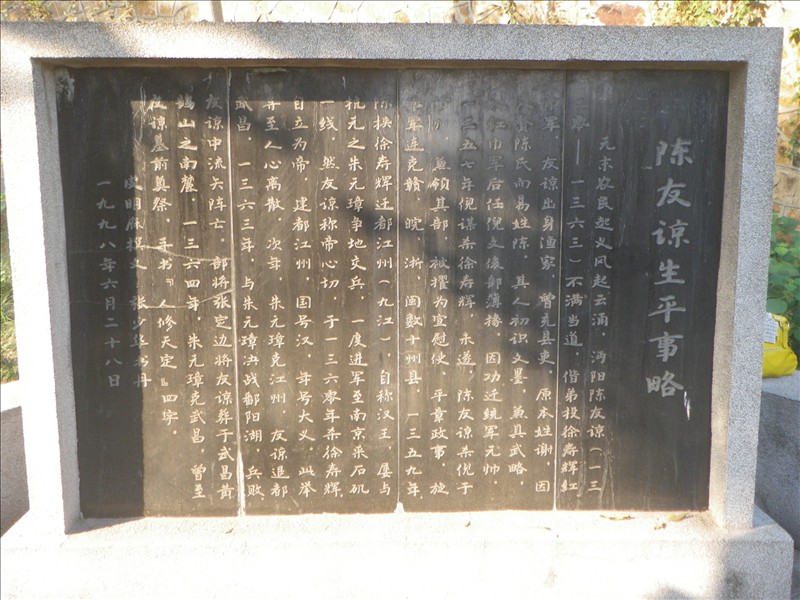 陈友谅生平事略
元末农民起义风起云涌，沔阳陈友谅（一三
零——一三六三）不满当道，偕弟投徐寿辉红
巾军，友谅出身渔家，曾充县吏，原本姓谢，因
陈氏而易姓陈，其人初识文墨，兼具武略，
红巾军后任倪文俊部簿掾，因功迁统军元帅，
一三五七年倪谋杀徐寿辉，未遂，陈友谅杀倪于
，兼领其部，被擢为宣慰使，平章政事，旋
率军连克赣、皖、浙、闽数十州县，一三五九年
陈挟徐寿辉迁都江州（九江）自称汉王，屡与
抗元之朱元璋争地交兵，一度进军至南京采石矶
一线，然友谅称帝心切，于一三六零年杀徐寿辉
自立为帝，建都江州，国号汉，年号大义，此举
并至人心离散，次年，朱元璋克江州，友谅退都
武昌，一三六三年，与朱元璋决战鄱阳湖，兵败
友谅中流矢阵亡，部将张定边将友谅葬于武昌黄
鹤山之南麓，一三六四年，朱元璋克武昌，曾至
友谅墓前奠祭，并书『人修天定』四字，
皮明庥撰文 张少华书丹
一九九八年六月二十八日